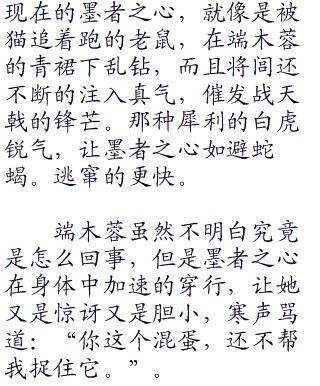 现在的墨者之心，就像是被
猫追着跑的老鼠，在端木蓉
的青裙下乱钻，而且将闾还
不断的注入真气，催发战天
戟的锋芒。那种犀利的白虎
锐气，让墨者之心如避蛇
蝎。逃窜的更快。
端木蓉虽然不明白究竟
是怎么回事，但是墨者之心
在身体中加速的穿行，让她
又是惊讶又是胆小，寒声骂
道：“你这个混蛋，还不帮
我捉住它。”。